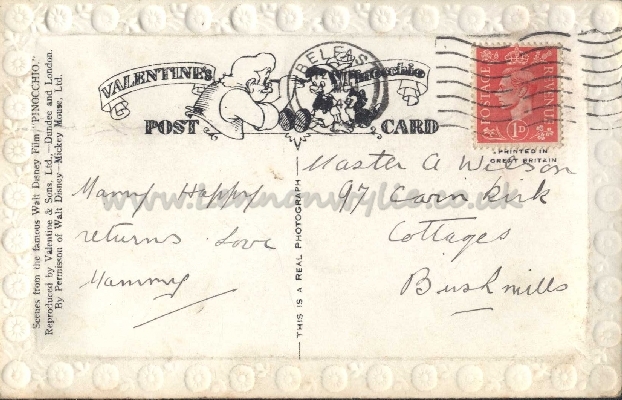 Scenes from the famous Walt Disney Film "PINOCCHIO."
Reproduced by Valentine & Sons, Ltd., Dundee and London.
By Permisson of Walt Disney—Mickey Mouse, Ltd.
VALENTINE'S
Pinocchio
POST CARD
BELFAST
POSTAGE
REVENUE
1D
PRINTED IN
GREAT BRITAIN
Many Happy
returns Love
Mammy
THIS IS A REAL PHOTOGRAPH
Master A Wilson
97 Carnkirk
Cottages
Bushmills